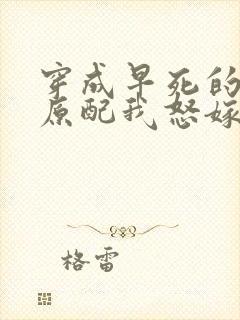 穿成早死的
原配我怒嫁
格雷